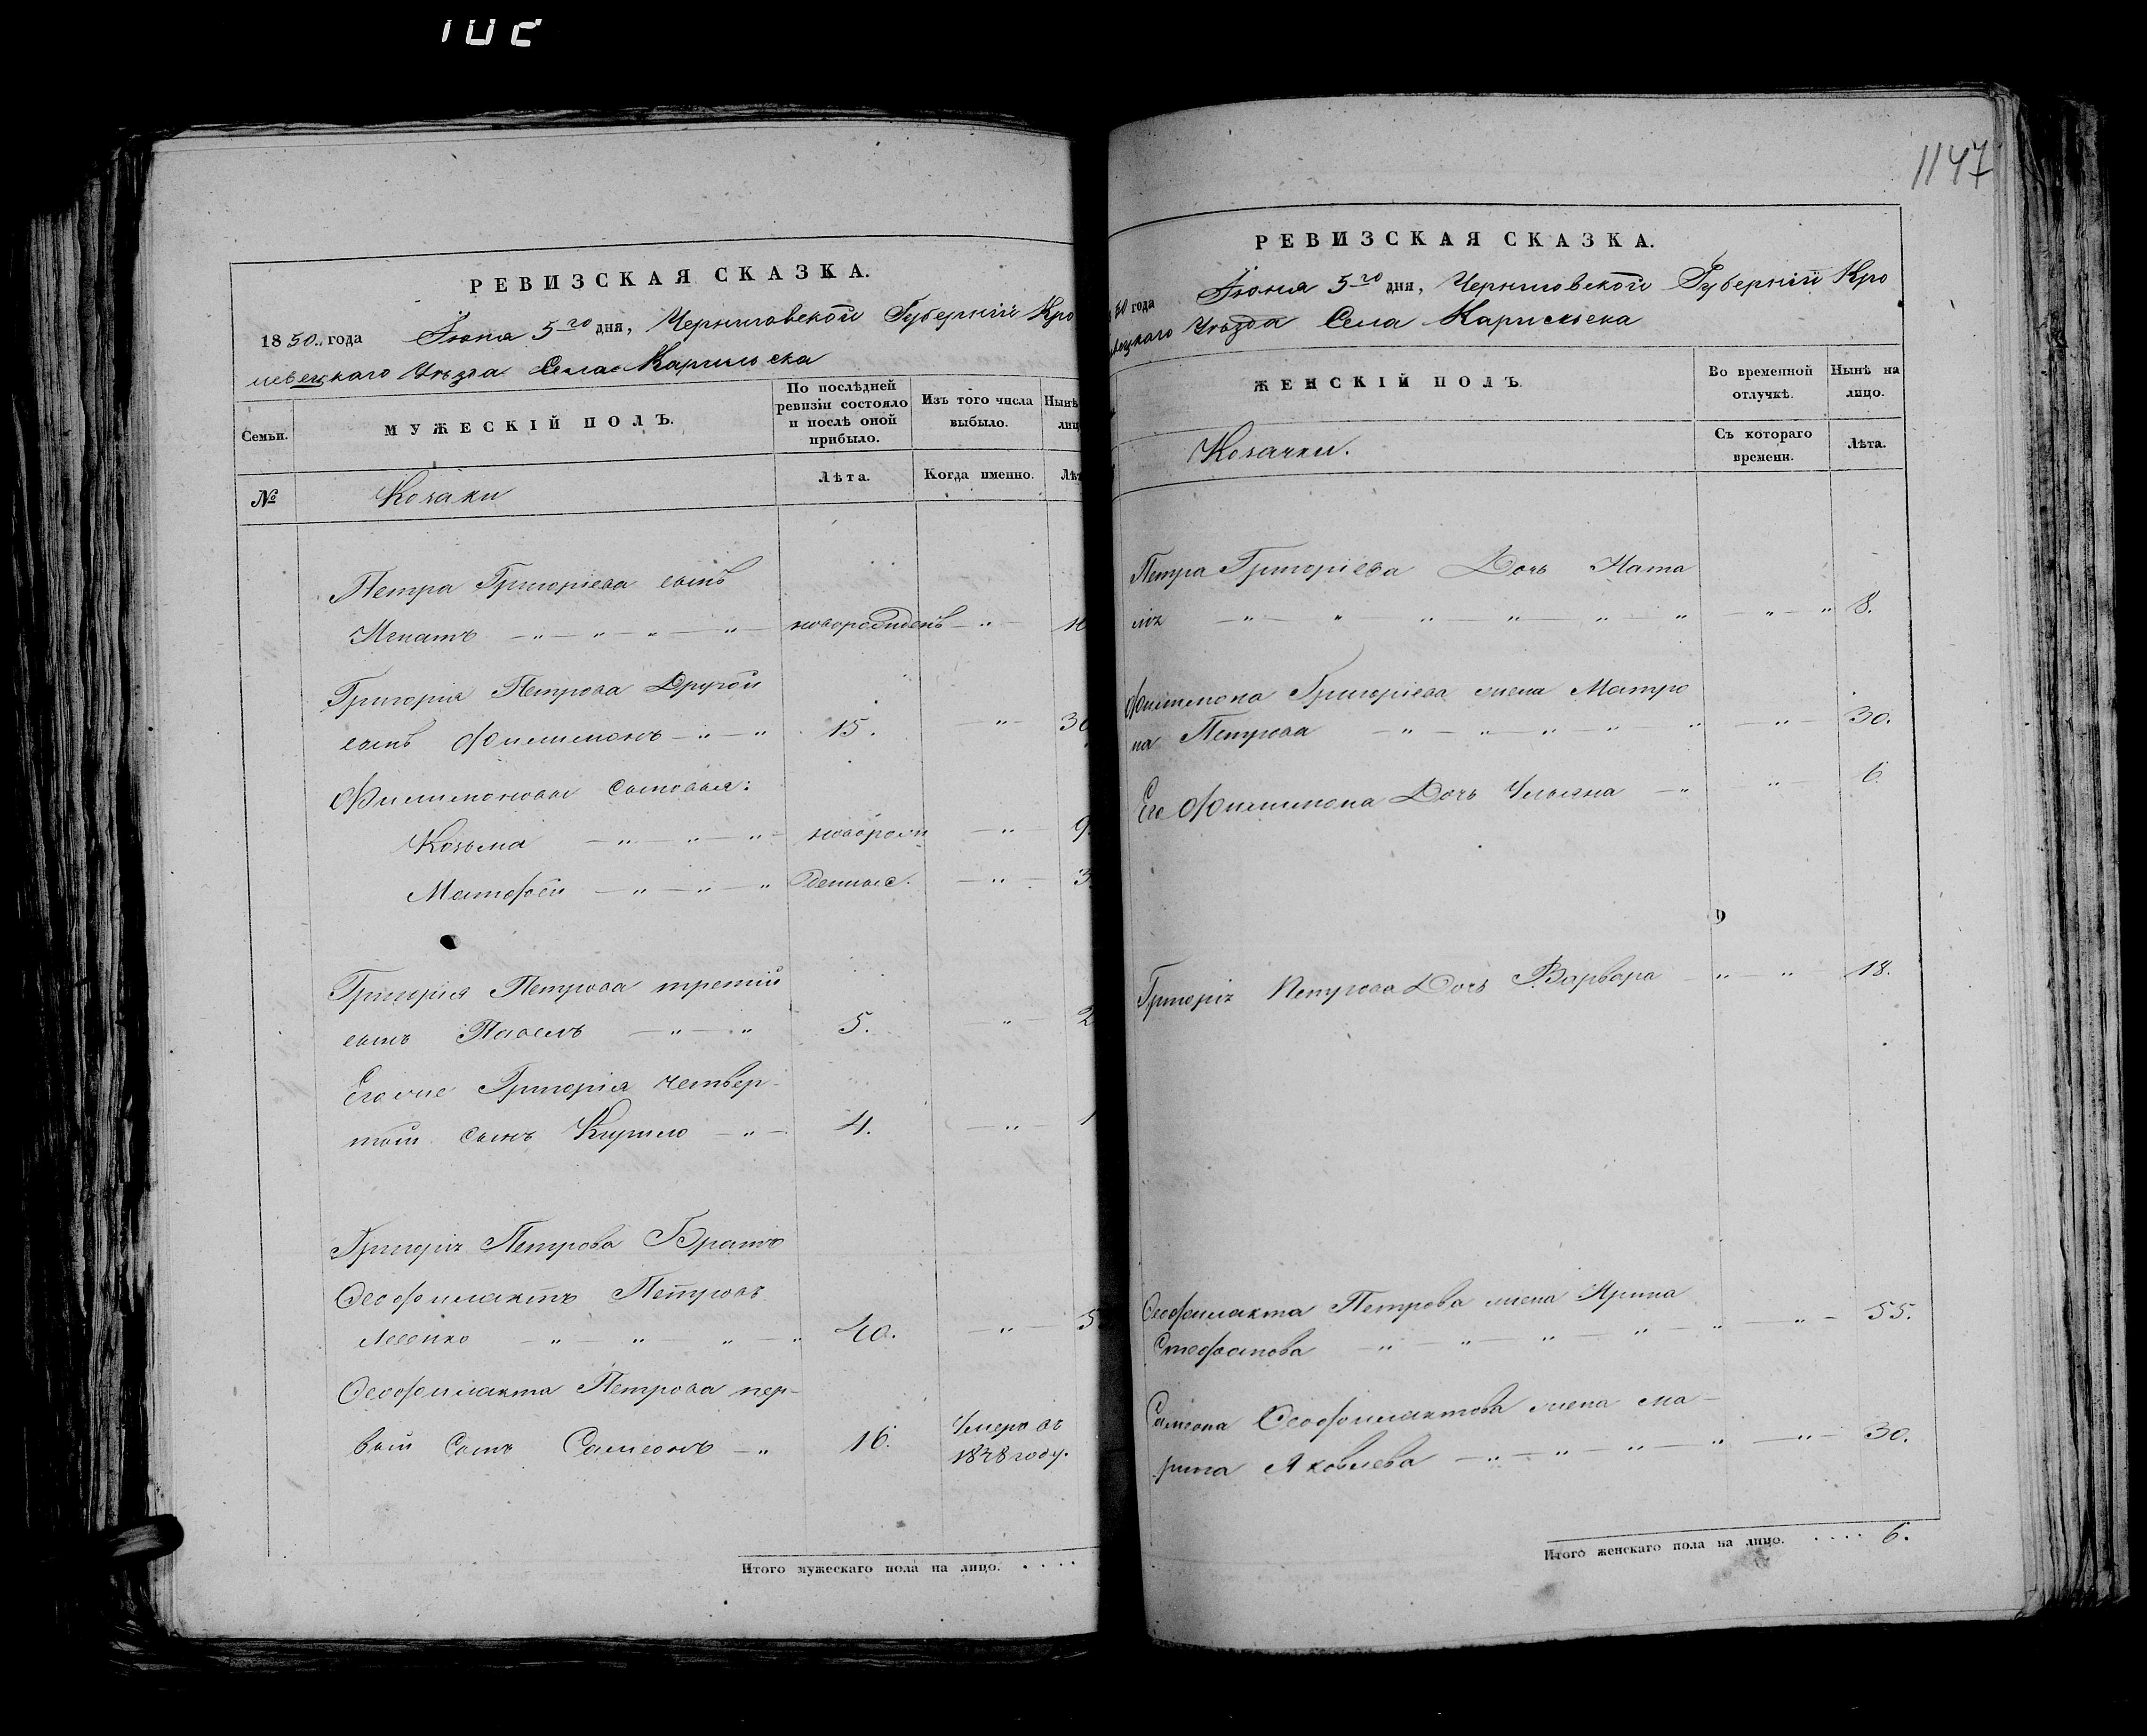 102
РЕВИЗСКАЯ СКАЗКА.
1850. года Іюня 5го дня, Черниговской Губерніи Кро
левецкаго Уѣзда Села Карильска
Семьи.
МУЖЕСКІЙ ПОЛЪ.
По послѣдней ревизіи состояло и послѣ оной прибыло.
Изъ того числа выбыло.
Нынѣ
лиц
№
Козаки
Лѣта.
Когда именно.
Лѣт
Петра Григоріева сынъ
Игнатъ новорожденъ 10
Григорія Петрова Другой
сынъ Филимонъ 15. 30
Филимоновы сыновья:
Козьма новорож 9
Матофей денные. 3.
Григорія Петрова третій
сынъ Павелъ 5. 2
Егоже Григорія четвер-
тый сынъ Кирило 4. 1
Григорія Петрова Братъ
Феофилактъ Петровъ
40. 5
Феофилакта Петрова пер-
вый Сынъ Самсонъ 16. Умеръ въ
1848 году.
Итого мужескаго пола на лицо. . . . .
1147
РЕВИЗСКАЯ СКАЗКА.
50 года Іюня 5го дня, Черниговской Губерніи Кро
левецкаго Уѣзда Села Карильска
ЖЕНСКІЙ ПОЛЪ.
Во временной отлучкѣ.
Нынѣ на лицо.
Козачки.
Съ котораго времени.
Лѣта.
Петра Григоріева Дочь Ната
лія 8.
Филимона Григоріева жена Матро
на Петрова 30.
Его Филимона Дочь Ульяна 6
Григорія Петрова Дочь Варвара 18.
Феофилакта Петрова жена Ярина
Стефанова 55.
Самсона Феофилактова жена Ма-
рина Яковлева 30.
Итого женскаго пола на лицо. . . . . 6.